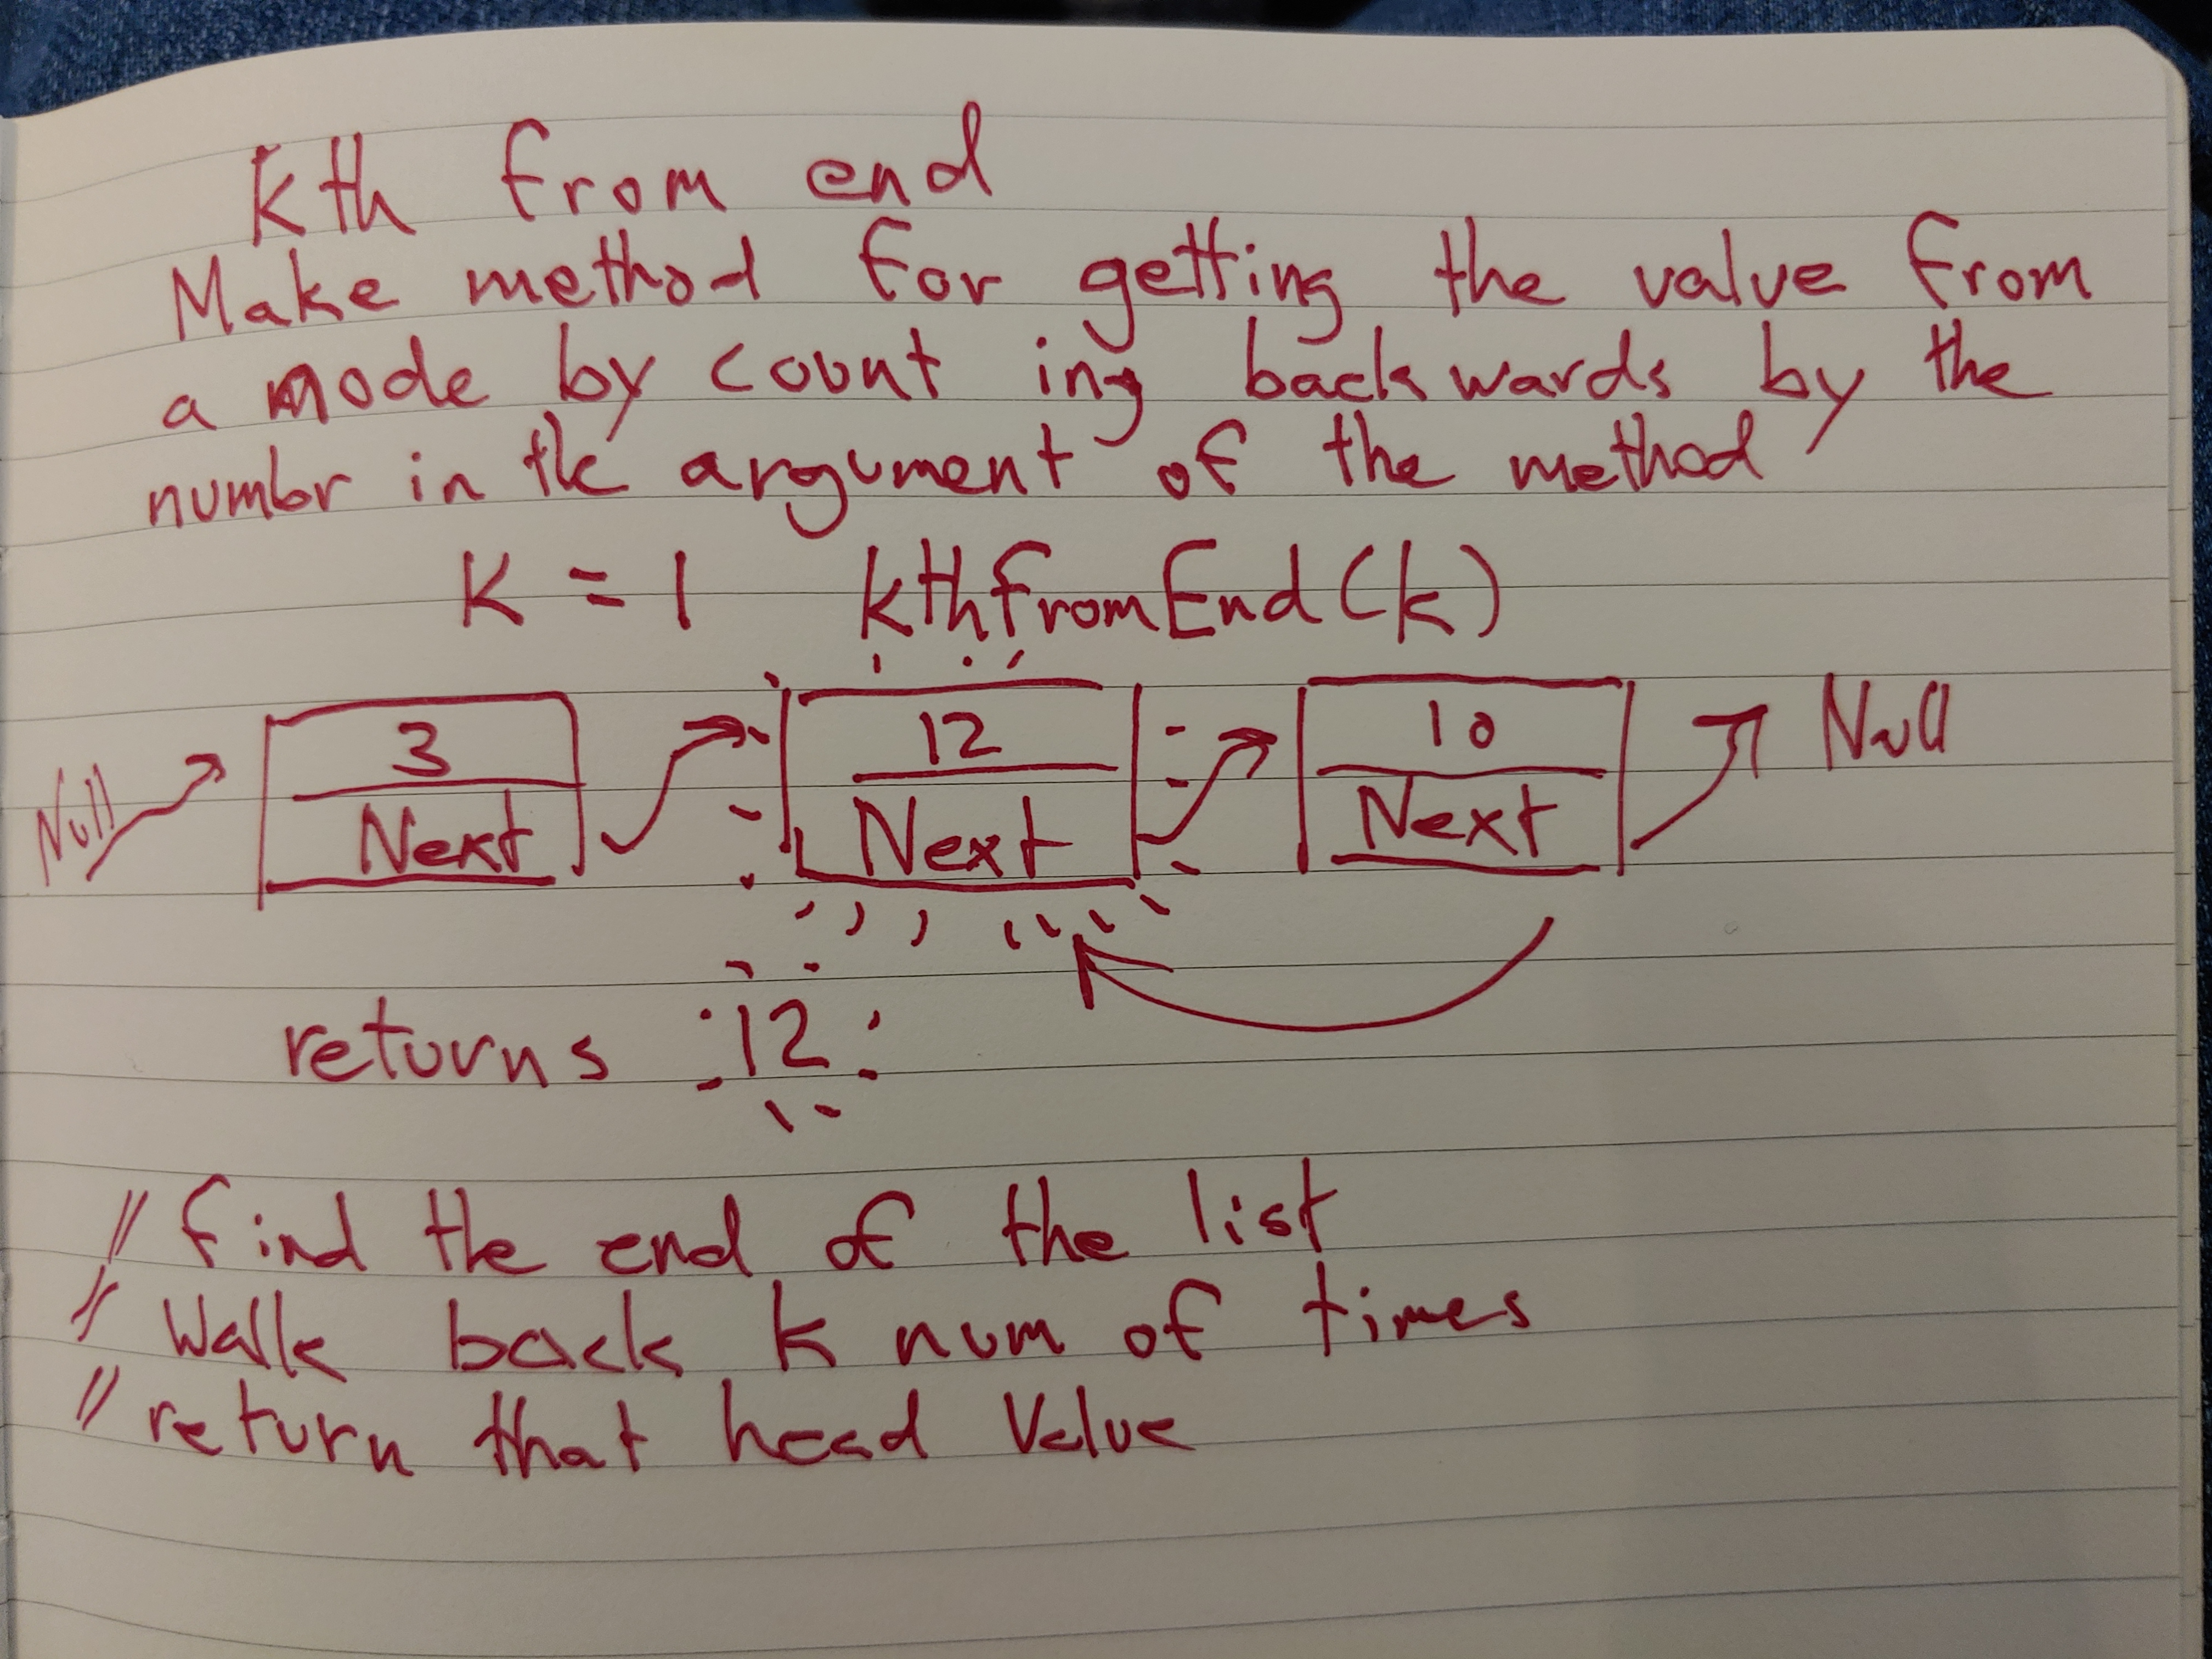 Kth from end
Make method for getting the value from
a mode by count ing backwards by the
numbr in the argument of the method
K = 1 kthfromEnd(k)
3 12 10 Null
Null Next Next Next
returns 12
// find the end of the list
// Walk back k num of times
// return that head Value